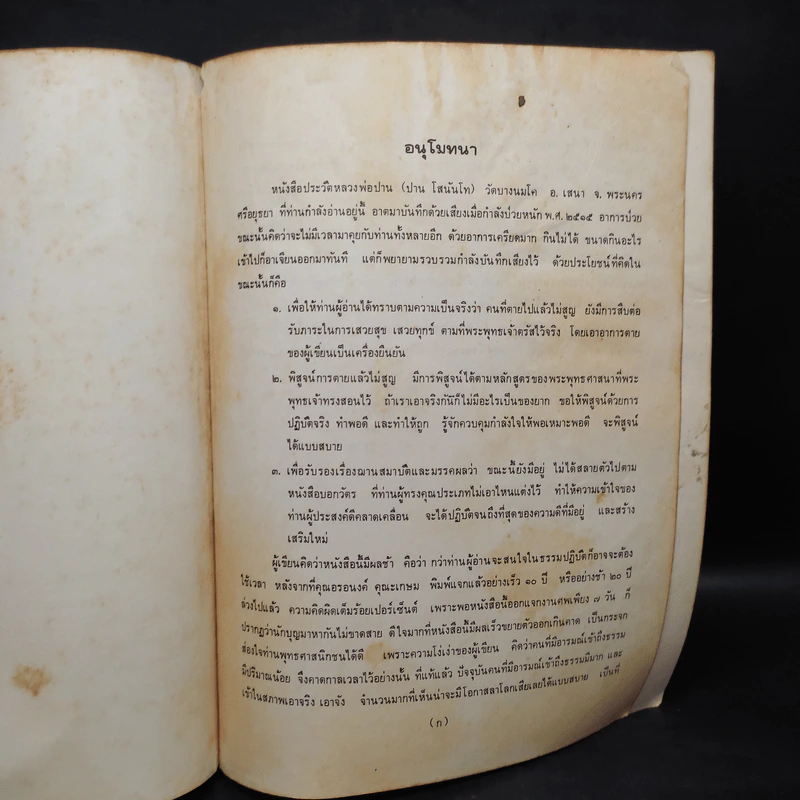 อนุโมทนา
หนังสือประวัติหลวงพ่อปาน (ปาน โสนันโท) วัดบางนมโค อ. เสนา จ. พระนคร
ศรีอยุธยา ที่ท่านกำลังอ่านอยู่นี้ อาตมาบันทึกด้วยเสียงเมื่อกำลังป่วยหนัก พ.ศ. ๒๕๑๕ อาการป่วย
ขณะนั้นคิดว่าจะไม่มีเวลามาคุยกับท่านทั้งหลายอีก ด้วยอาการเครียดมาก กินไม่ได้ ขนาดกินอะไร
เข้าไปก็อาเจียนออกมาทันที แต่ก็พยายามรวบรวมกำลังบันทึกเสียงไว้ ด้วยประโยชน์ที่คิดใน
ขณะนั้นก็คือ
๑. เพื่อให้ท่านผู้อ่านได้ทราบตามความเป็นจริงว่า คนที่ตายไปแล้วไม่สูญ ยังมีการสืบต่อ
รับภาระในการเสวยสุข เสวยทุกข์ ตามที่พระพุทธเจ้าตรัสไว้จริง โดยเอาอาการตาย
ของผู้เขียนเป็นเครื่องยืนยัน
๒. พิสูจน์การตายแล้วไม่สูญ มีการพิสูจน์ได้ตามหลักสูตรของพระพุทธศาสนาที่พระ
พุทธเจ้าทรงสอนไว้ ถ้าเราเอาจริงกันก็ไม่มีอะไรเป็นของยาก ขอให้พิสูจน์ด้วยการ
ปฏิบัติจริง ทำพอดี และทำให้ถูก รู้จักควบคุมกำลังใจให้พอเหมาะพอดี จะพิสูจน์
ได้แบบสบาย
๓. เพื่อรับรองเรื่องฌานสมาบัติและมรรคผลว่า ขณะนี้ยังมีอยู่ ไม่ได้สลายตัวไปตาม
หนังสือบอกวัตร ที่ท่านผู้ทรงคุณประเภทไม่เอาไหนแต่งไว้ ทำให้ความเข้าใจของ
ท่านผู้ประสงค์ดีคลาดเคลื่อน จะได้ปฏิบัติจนถึงที่สุดของความดีที่มีอยู่ และสร้าง
เสริมใหม่
ผู้เขียนคิดว่าหนังสือนี้มีผลช้า คือว่า กว่าท่านผู้อ่านจะสนใจในธรรมปฏิบัติก็อาจจะต้อง
ใช้เวลา หลังจากที่คุณอรอนงค์ คุณะเกษม พิมพ์แจกแล้วอย่างเร็ว ๑๐ ปี หรืออย่างช้า ๒๐ ปี
ล่วงไปแล้ว ความคิดผิดเต็มร้อยเปอร์เซ็นต์ เพราะพอหนังสือนี้ออกแจกงานศพเพียง ๗ วัน ก็
ปรากฏว่านักบุญมาหากันไม่ขาดสาย ดีใจมากที่หนังสือนี้มีผลเร็วขยายตัวออกเกินคาด เป็นกระจก
ส่องใจท่านพุทธศาสนิกชนได้ดี เพราะความโง่เง่าของผู้เขียน คิดว่าคนที่มีอารมณ์เข้าถึงธรรม
มีปริมาณน้อย จึงคาดกาลเวลาไว้อย่างนั้น ที่แท้แล้ว ปัจจุบันคนที่มีอารมณ์เข้าถึงธรรมมีมาก และ
เข้าในสภาพเอาจริง เอาจัง จำนวนมากที่เห็นน่าจะมีโอกาสลาโลกเสียเลยได้แบบสบาย เป็นที่
(ก)